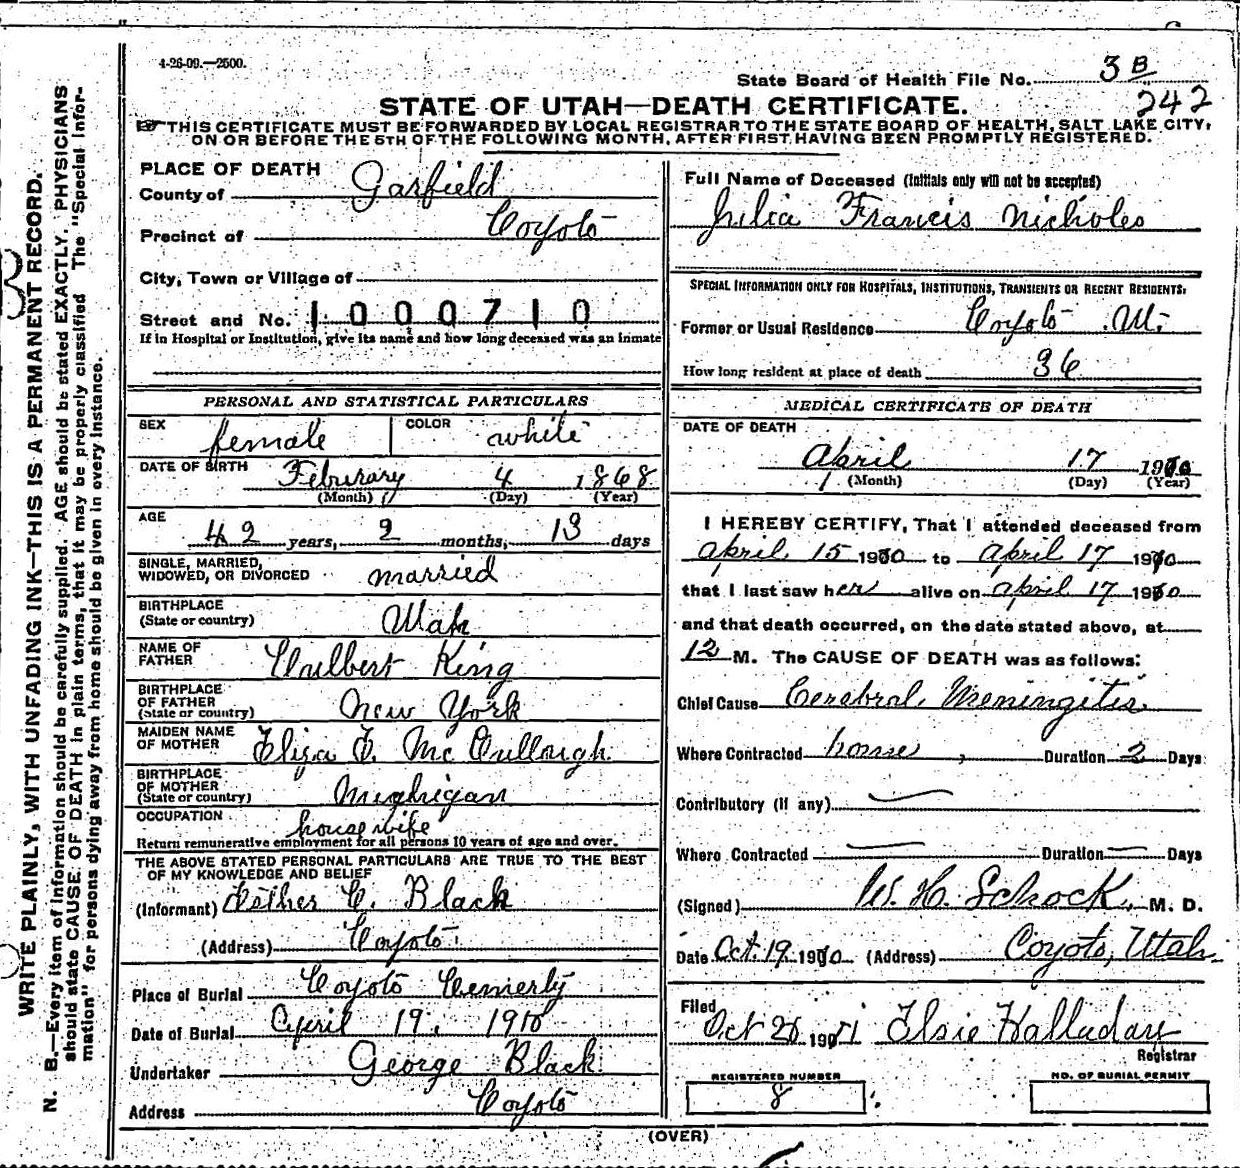 4-26-09.—2500.
State Board of Health File No. 3 B
242
STATE OF UTAH—DEATH CERTIFICATE.
THIS CERTIFICATE MUST BE FORWARDED BY LOCAL REGISTRAR TO THE STATE BOARD OF HEALTH, SALT LAKE CITY,
ON OR BEFORE THE 5TH OF THE FOLLOWING MONTH, AFTER FIRST HAVING BEEN PROMPTLY REGISTERED.
WRITE PLAINLY, WITH UNFADING INK—THIS IS A PERMANENT RECORD.
N. B.—Every item of information should be carefully supplied. AGE should be stated EXACTLY. PHYSICIANS
should state CAUSE OF DEATH in plain terms, that it may be properly classified. The "Special Infor-
mation" for persons dying away from home should be given in every instance.
PLACE OF DEATH
County of Garfield
Precinct of Coyoto
City, Town or Village of
Street and No. 1000710
If in Hospital or Institution, give its name and how long deceased was an inmate
PERSONAL AND STATISTICAL PARTICULARS
SEX female COLOR white
DATE OF BIRTH Feburary 4 1868
(Month) (Day) (Year)
AGE 42 years, 2 months, 13 days
SINGLE, MARRIED,
WIDOWED, OR DIVORCED married
BIRTHPLACE
(State or country) Utah
NAME OF
FATHER Culbert King
BIRTHPLACE
OF FATHER
(State or country) New York
MAIDEN NAME
OF MOTHER Eliza E. McCullough
BIRTHPLACE
OF MOTHER
(State or country) Mighigan
OCCUPATION housewife
Return remunerative employment for all persons 10 years of age and over.
THE ABOVE STATED PERSONAL PARTICULARS ARE TRUE TO THE BEST
OF MY KNOWLEDGE AND BELIEF
(Informant) Esther C. Black
(Address) Coyoto
Place of Burial Coyoto Cemerty
Date of Burial April 19, 1910
Undertaker George Black
Address Coyoto
Full Name of Deceased (Initials only will not be accepted)
Julia Francis Nicholes
SPECIAL INFORMATION ONLY FOR HOSPITALS, INSTITUTIONS, TRANSIENTS OR RECENT RESIDENTS:
Former or Usual Residence Coyoto Ut.
How long resident at place of death 36
MEDICAL CERTIFICATE OF DEATH
DATE OF DEATH
April 17 1910
(Month) (Day) (Year)
I HEREBY CERTIFY, That I attended deceased from
april 15 1910 to april 17 1910
that I last saw her alive on april 17 1910
and that death occurred, on the date stated above, at
12 M. The CAUSE OF DEATH was as follows:
Chief Cause Cerebral Meningitis
Where Contracted home, Duration 2 Days
Contributory (if any)
Where Contracted Duration Days
(Signed) W. H. Schock, M. D.
Date Oct. 19 1910 (Address) Coyoto, Utah
Filed Oct 26 1911 Elsie Halladay
Registrar
REGISTERED NUMBER
8
NO. OF BURIAL PERMIT
(OVER)